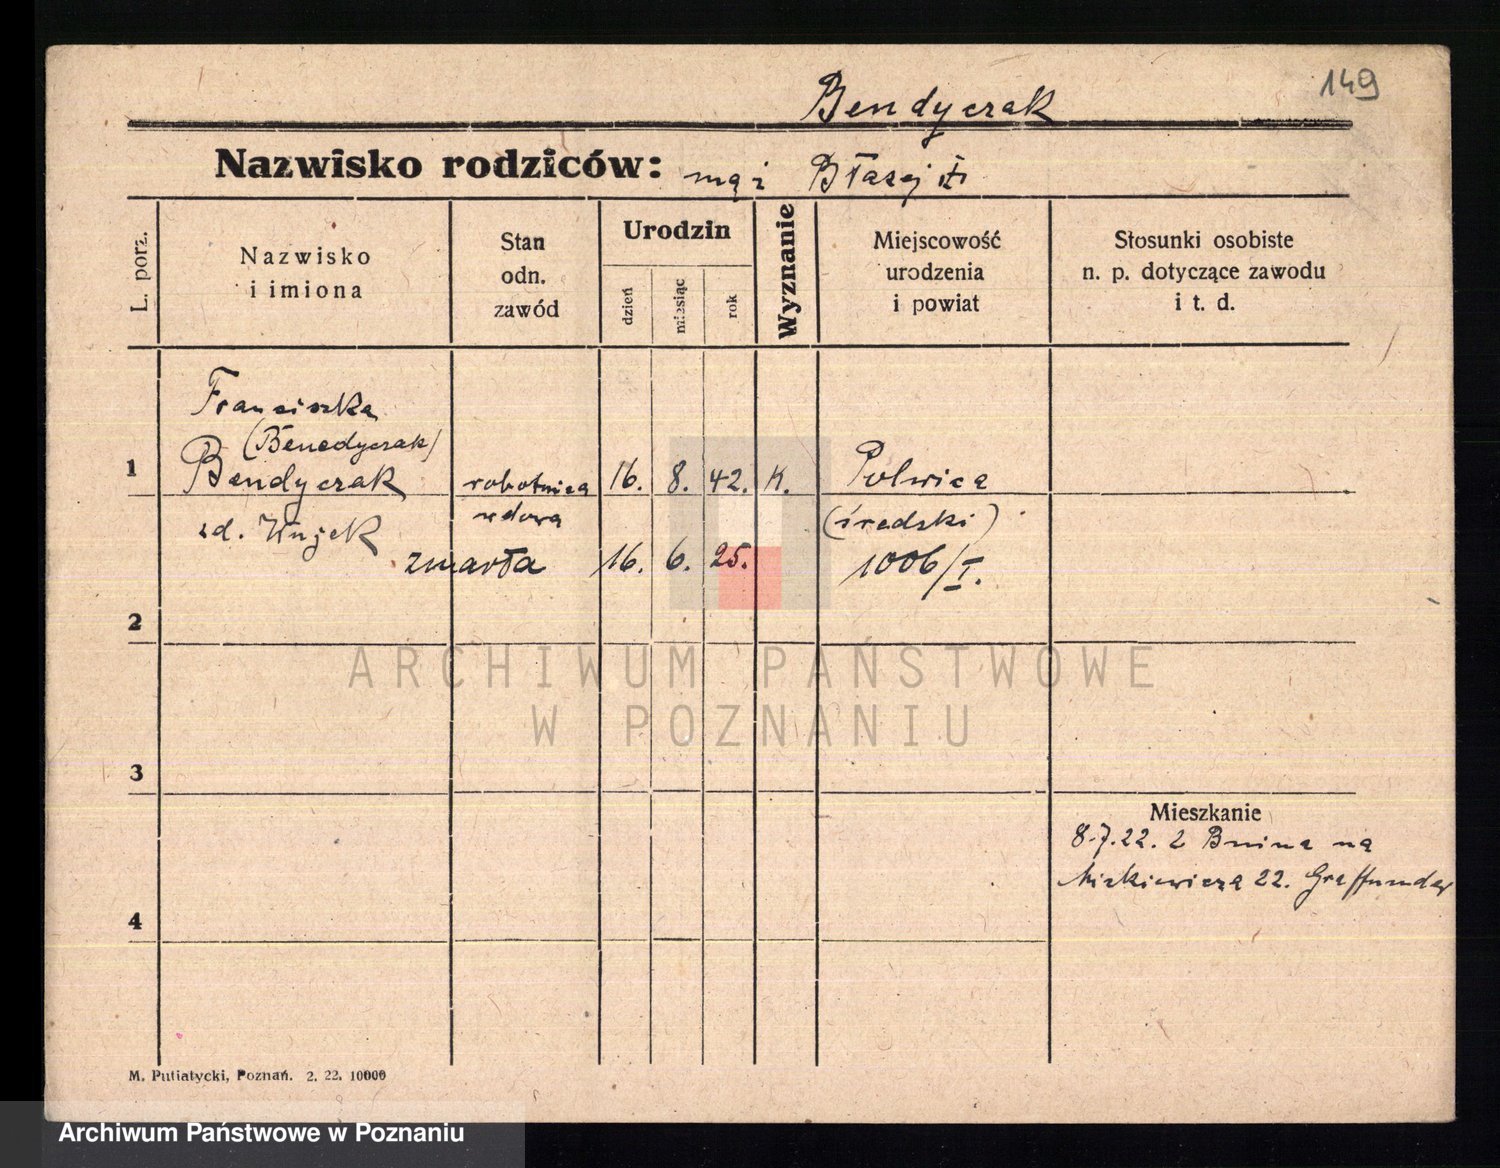 149
Bendyczak
Nazwisko rodziców: mąż Błażej
L. porz.
Nazwisko
i imiona
Stan
odn.
zawód
Urodzin
dzień
miesiąc
rok
Wyznanie
Miejscowość
urodzenia
i powiat
Stosunki osobiste
n. p. dotyczące zawodu
i t. d.
Franciszka
(Benedyczak)
1 Bendyczak robotnica 16. 8. 42. K. Polwica
zd. Wujek wdowa (średzki)
zmarła 16. 6. 25. 1006/I.
2
ARCHIWUM PAŃSTWOWE
W POZNANIU
3
Mieszkanie
8.7.22. z Bnina na
22.
4
M. Putiatycki, Poznań. 2. 22. 10000
Archiwum Państwowe w Poznaniu